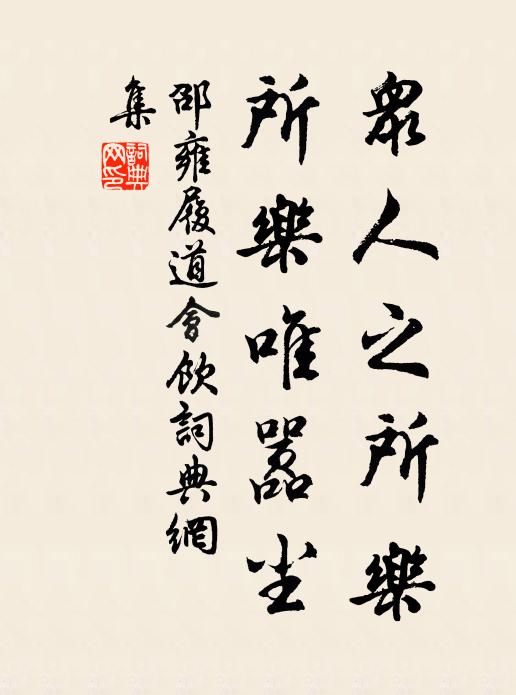 眾人之所樂
所樂唯囂尘
邵雍履道會飲詞典網
集
詞典
网印